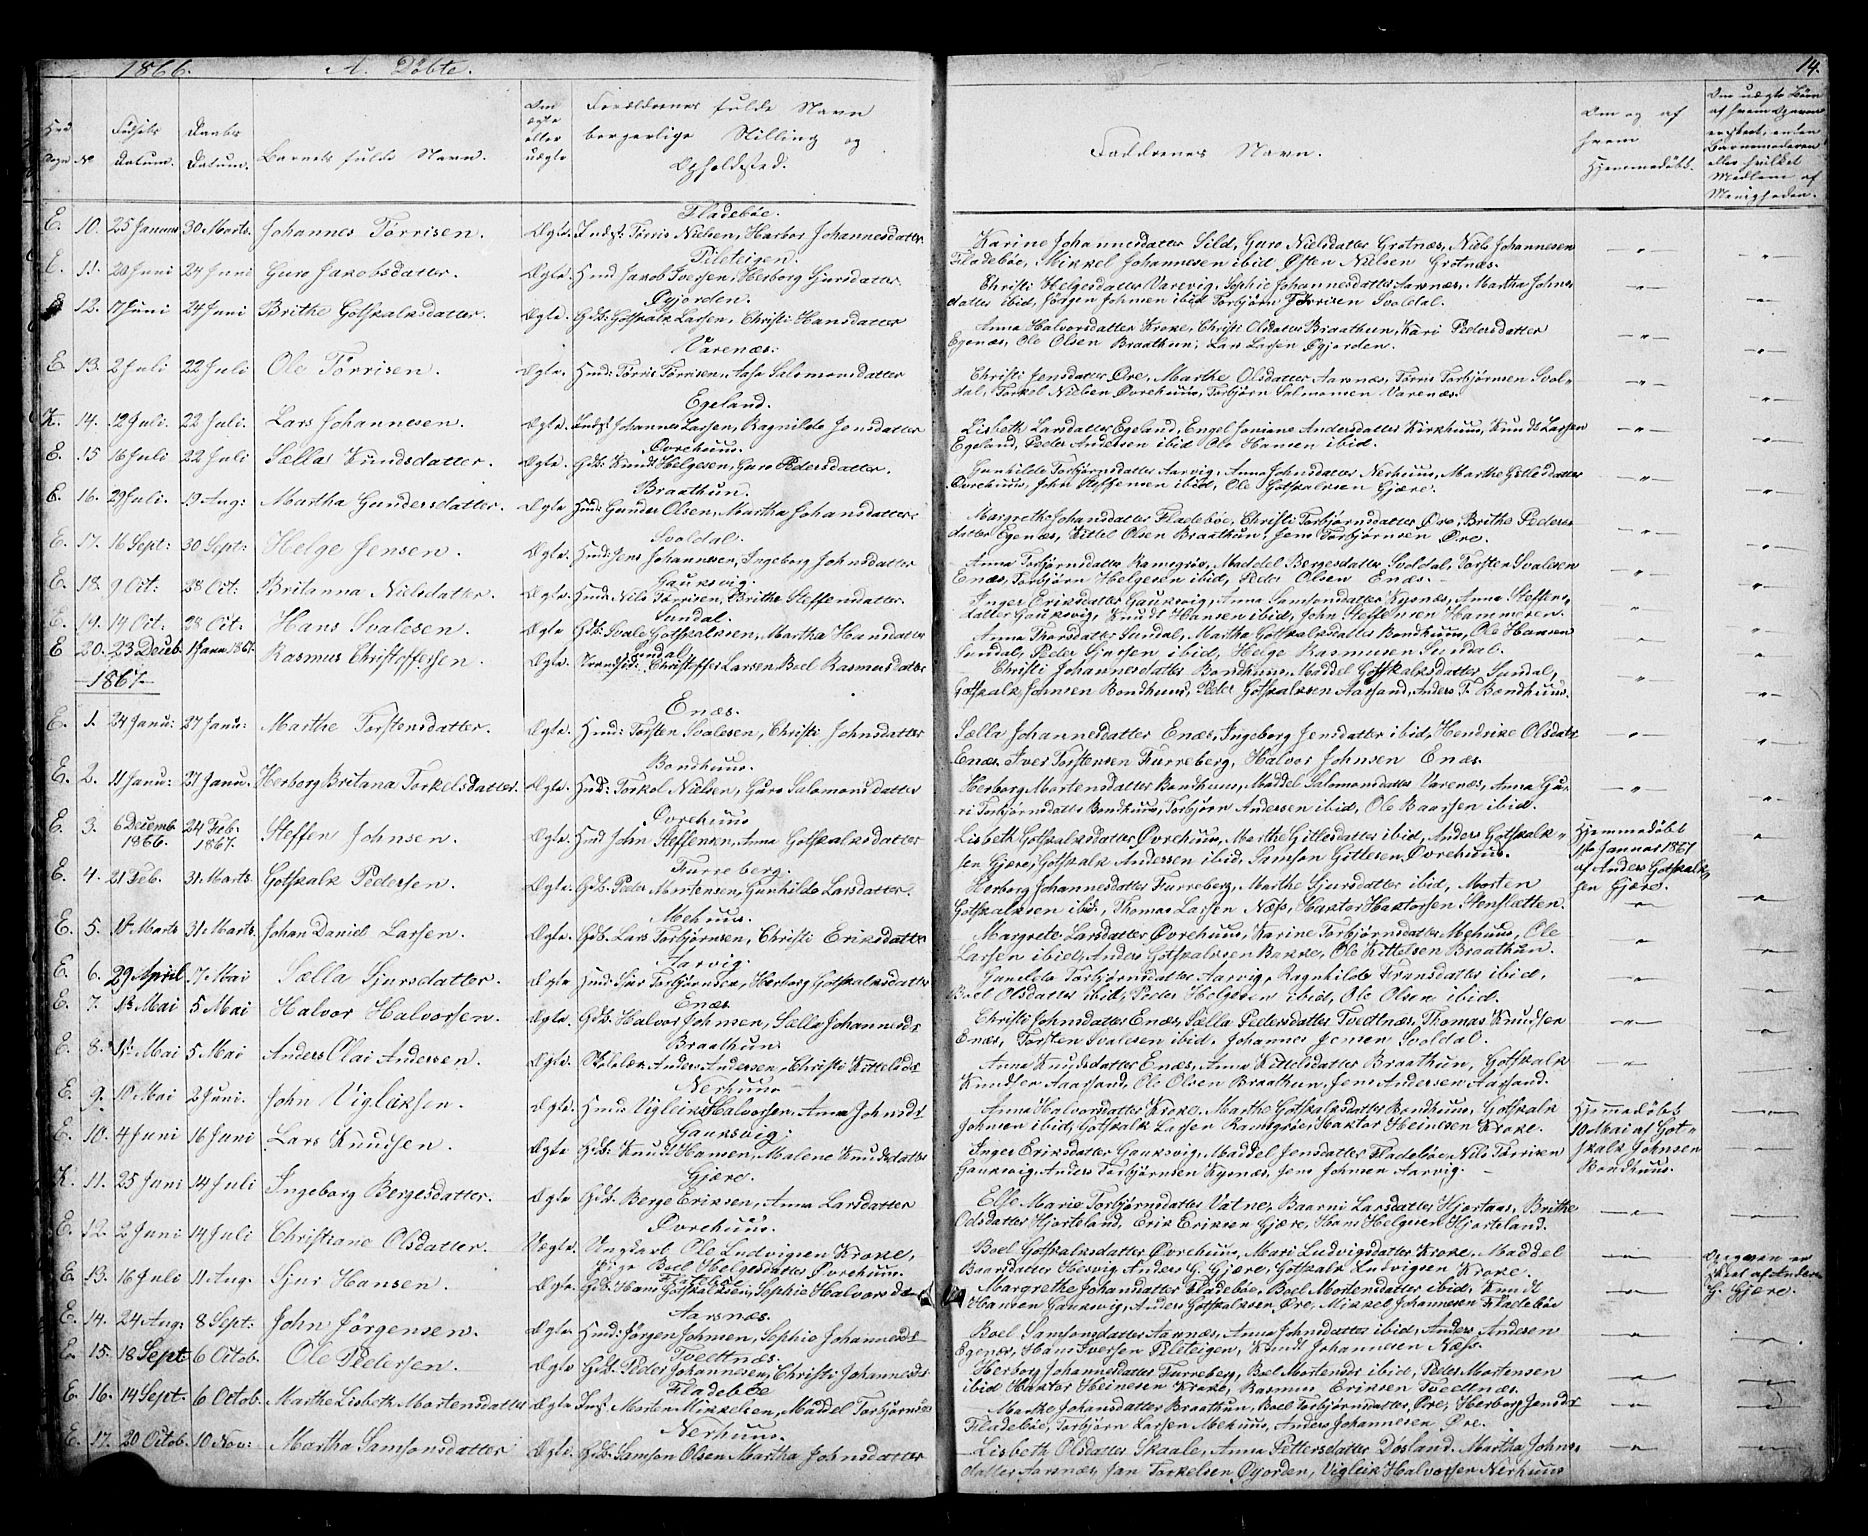 1866. A. Döbte. 14.
No Födsels Datum. Daabs Datum. Barnets fulde Navn. Om ægte eller uægte Forældrenes fulde Navn borgerlige Stilling og Opholdsted. Faddrenes Navn. Om og af hvem Hjemmedöbt. Om uægte Börn af hvem Opgaven er skeet, enten Barnemoderen eller hvilket Medlem af Menigheden.
Fladeböe.
E. 10. 25 Januar 30 Marts. Johannes Törrisen. Ægte. Indst: Törris Nielsen, Herbor Johannesdatter
Karine Johannesdatter Sild, Guro Nielsdatter Grotnæs, Niels Johannesen
Fladeböe, Mikkel Johannesen ibid Östen Nielsen Grotnæs.
Pileteigen.
E. 11. 20 Juni 24 Juni Guro Jakobsdatter. Ægte. Hmd Jakob Iversen, Herborg Sjursdatter
Christi Helgesdatter Varevig, Sophie Johannesdatter Aarsnæs, Martha Johnes
datter ibid, Jörgen Johnsen ibid Torbjörn Törrisen Svoldal.
Öyjorden.
E. 12. 17 Juni 24 Juni Brithe Gotskalksdatter. Ægte. Gdb: Gotskalk Larsen, Christi Hansdatter
Anna Halvorsdatter Kroke, Christi Olsdatter Braathun, Kari Pedersdatter
Egenæs, Ole Olsen Braathun, Lars Larsen Öyjorden.
Varenæs:
E. 13. 2 Juli 22 Juli Ole Törrisen. Ægte. Hmd: Törris Törrisen, Aasa Salomonsdatter
Christi Jensdatter Öre, Marthe Olsdatter Aarsnæs, Törris Torbjörnsen Svol-
dal, Torkel Nielsen Övrehuus, Torbjörn Salmonsen Varenæs.
Egeland.
K. 14. 12 Juli. 22 Juli. Lars Johannesen. Ægte. Indst Johannes Larsen, Ragnilde Jonsdatter
Lisbeth Larsdatter Egeland, Engel Joniane Andersdatter Kirkhuus, Knudt Larsen
Egeland, Peder Andersen ibid Ole Hansen ibid.
Övrehuus.
E. 15 16 Juli 22 Juli Sælla Knudsdatter. Ægte. Gdb: Knudt Helgesen, Guro Pedersdatter.
Gunhilde Torbjörnsdatter Aarvig, Anna Johnsdatter Nerhuus, Marthe Gitlesdatter
Övrehuus, John Steffensen ibid, Ole Gotskalksen Gjære.
Braathun.
E. 16. 29 Juli. 19 Aug: Martha Gundersdatter. Ægte Hmd: Gunder Olsen, Martha Johansdatter
Margrethe Johansdatter Fladeböe, Christi Torbjörnsdatter Öre, Brithe Peders
datter Egenæs, Kittel Olsen Braathun, Jens Torbjörnsen Öre.
Svoldal.
E. 17. 16 Sept: 30 Sept: Helge Jensen. Ægte. Hmd: Jens Johannesen, Ingeborg Johnsdatter
Anna Torbjörnsdatter Ramsgröe, Maddel Bergesdatter Svoldal, Torsten Svalesen
Enæs, Torbjörn Helgesen ibid, Peder Olsen Enæs.
Gauksvig.
E. 18. 9 Oct: 28 Oct: Britanna Nielsdatter. Ægte. Hmd: Nils Törrisen, Brithe Steffensdatter.
Inger Eriksdatter Gauksvig, Anna Samsonsdatter Egenæs, Anna Steffens-
datter Gauksvig, Knudt Hansen ibid, John Steffensen Hammeren.
Sundal.
E. 19. 19 Oct. 28 Oct. Hans Svalesen. Ægte Gdb: Svale Gotskalksen, Martha Hansdatter
Anna Thorsdatter Sundal, Martha Gotskalksdatter Bondhuus, Ole Hansen
Sundal, Peder Sjursen ibid, Helge Rasmusen Sundal.
Sundal.
E 20. 23 Decbr. 1 Janu 1867. Rasmus Christoffersen. Ægte. Christoffer Larsen, Boel Rasmusdatter
Christi Johannesdatter Bondhuus, Maddel Gotskalksdatter Sundal,
Gotskalk Johnsen Bondhuus, Peder Gotskalksen Aarsand, Anders T. Bondhuus.
1867
Enæs.
E. 1. 24 Janu: 27 Janu: Marthe Torstensdatter. Ægte. Hmd: Torsten Svalesen, Christi Johnsdatter
Sælla Johannesdatter Enæs, Ingeborg Jensdatter ibid, Hendrike Olsdatt
Enæs, Iver Torstensen Furreberg, Halvor Johnsen Enæs.
Bondhuus.
E. 2. 11 Janu: 27 Janu. Herborg Britana Torkelsdatter. Ægte. Hmd: Torkel Nielsen, Guro Salomonsdatter
Herborg Mortensdatter Bondhuus, Maddel Salomonsdatter Varenæs, Anna Gu-
ri Torbjörnsdatter Bondhuus, Torbjörn Andersen ibid, Ole Baarsen ibid.
Övrehuus
E. 3. 6 Decemb. 1866. 24 Feb. 1867. Steffen Johnsen. Ægte. Hmd John Steffensen, Anna Gotskalksdatter
Lisbeth Gotskalksdatter Övrehuus, Marthe Gitlesdatter ibid, Anders Gotskalk-
sen Gjære, Gotskalk Andersen ibid, Samson Gitlesen Övrehuus.
Hjemmedöbt 1ste Januar 1867 af Anders Gotskalksen Gjære.
Furreberg.
E. 4. 21 Feb. 31 Marts. Gotskalk Pedersen. Ægte. Gdb: Peder Mortensen, Gunhilde Larsdatter.
Herborg Johannesdatter Furreberg, Marthe Sjursdatter ibid, Morten
Gotskalksen ibid, Thomas Larsen Næss, Haktor Haktorsen Stensletten.
Mehuus.
E. 5. 10 Marts 31 Marts. Johan Daniel Larsen. Ægte. Gdb. Lars Torbjörnsen, Christi Eriksdatter
Margrete Larsdatter Övrehuus, Karine Torbjörnsdatter Mehuus, Ole
Larsen ibid, Anders Gotskalksen Bakke, Ole Kittelsen Braathun.
Aarvig.
E. 6. 29 April 7 Mai Sælla Sjursdatter. Ægte Hmd: Siur Torbjörnsen, Herborg Gotskalksdatter
Gunilda Torbjörnsdatter Aarvig, Ragnhilde Fransdatter ibid,
Boel Olsdatter ibid, Peder Helgesen ibid, Ole Olsen ibid.
Enæs
E. 7. 1st Mai 5 Mai Halvor Halvorsen. Ægte. Gdb. Halvor Johnsen, Sælla Johannesdt
Christi Johnsdatter Enæs, Sælla Pedersdatter Tvedtnæs, Thomas Knudsen
Enæs, Torsten Svalesen ibid. Johannes Jensen Svoldal.
Braathun
E. 8. 1st Mai 5 Mai Anders Olai Andersen. Ægte. Skolelær. Anders Andersen, Christi Kittelsdt
Anna Knudsdatter Enæs, Anna Kittelsdatter Braathun, Gotskalk
Knudsen Aarsand, Ole Olsen Braathun, Jens Andersen Aarsand.
Nerhuus
E. 9. 10 Mai 2 Juni. John Vigleiksen. Ægte. Hmd: Vigleik Halvorsen, Anna Johnsdt
Anna Halvorsdatter Kroke, Marthe Gotskalksdatter Bondhuus, Gotskalk
Johnsen ibid, Gotskalk Larsen Ramsgröe, Haktor Heinesen Kroke.
Hjemmedöbt 10 Mai af Gotskalk Johnsen Bondhuus.
Gauksvig:
E. 10. 4 Juni 16 Juni Lars Knudsen. Ægte Gdb: Knudt Hansen, Malene Knudsdatter
Inger Eriksdatter Gauksvig, Maddel Jensdatter Fladeböe, Nils Törrisen
Gauksvig, Anders Torbjörnsen Egenæs, Jens Johnsen Aarvig.
Gjære.
K. 11. 25 Juni 14 Juli Ingeborg Bergesdatter. Ægte Gdb: Berge Eriksen, Anna Larsdatter
Else Marie Torbjörnsdatter Vatne, Baarni Larsdatter Hjortaas, Brithe
Odsdatter Hjorteland, Erik Eriksen Gjære, Hans Helgesen Hjorteland.
Övrehuus.
E. 12. 2 Juni 14 Juli Christiane Olsdatter. Uægte. Ungkarl Ole Ludvigsen Kroke,
Pige Boel Helgesdatter Övrehuus.
Boel Gotskalksdatter Övrehuus, Mari Ludvigsdatter Kroke, Maddel
Baarsdatter Hesvig Anders G. Gjære, Gotskalk Ludvigsen Kroke.
Opgaven er skeet af Anders G. Gjære.
E. 13. 16 Juli 11 Aug. Sjur Hansen. Ægte. Gdb. Hans Gotskalksen, Sophie Halvorsdt
Margrethe Johansdatter Fladeböe, Boel Mortensdatter ibid, Knudt
Hansen Gauksvig, Anders Gotskalksen Öre, Mikkel Johannesen Fladeböe
Aarsnæs.
E. 14. 24 Aug. 8 Sept: John Jörgensen. Ægte. Hmd: Jörgen Johnsen, Sophie Johannesdt
Boel Samsonsdatter Aarsnæs, Anna Johnsdatter ibid, Anders Andersen
Egenæs, Hans Iversen Pileteigen, Knudt Johannesen Næss.
Tvedtnæs.
E. 15. 18 Sept: 6 Octob. Ole Pedersen. Ægte. Gdb. Peder Johannesen, Christi Johannesdt
Herborg Johannesdatter Furreberg, Boel Mortensdt ibid, Peder Mortensen
ibid Haktor Heinesen Kroke, Rasmus Eriksen Tvedtnæs.
Fladeböe
E. 16. 14 Sept. 6 Octob. Marthe Lisbeth Mortensdatter Ægte Inst Morten Mikkelsen, Maddel Torbjörnsdt
Marthe Johansdatter Braathun, Boel Torbjörnsdatter, Öre, Herborg Jensdt
Fladeböe, Torbjörn Larsen Mehuus, Anders Johannesen Öre.
Nerhuus.
E. 17. 20 Octob. 10 Nov: Martha Samsonsdatter Ægte. Gdb. Samson Olsen Martha Johnsdatter
Lisbeth Olsdatter Skaale, Anna Pettersdatter Dösland, Martha Johns-
datter Aarsnæs, Jan Torkelsen Öyorden, Vigleik Halvorsen Nerhuus